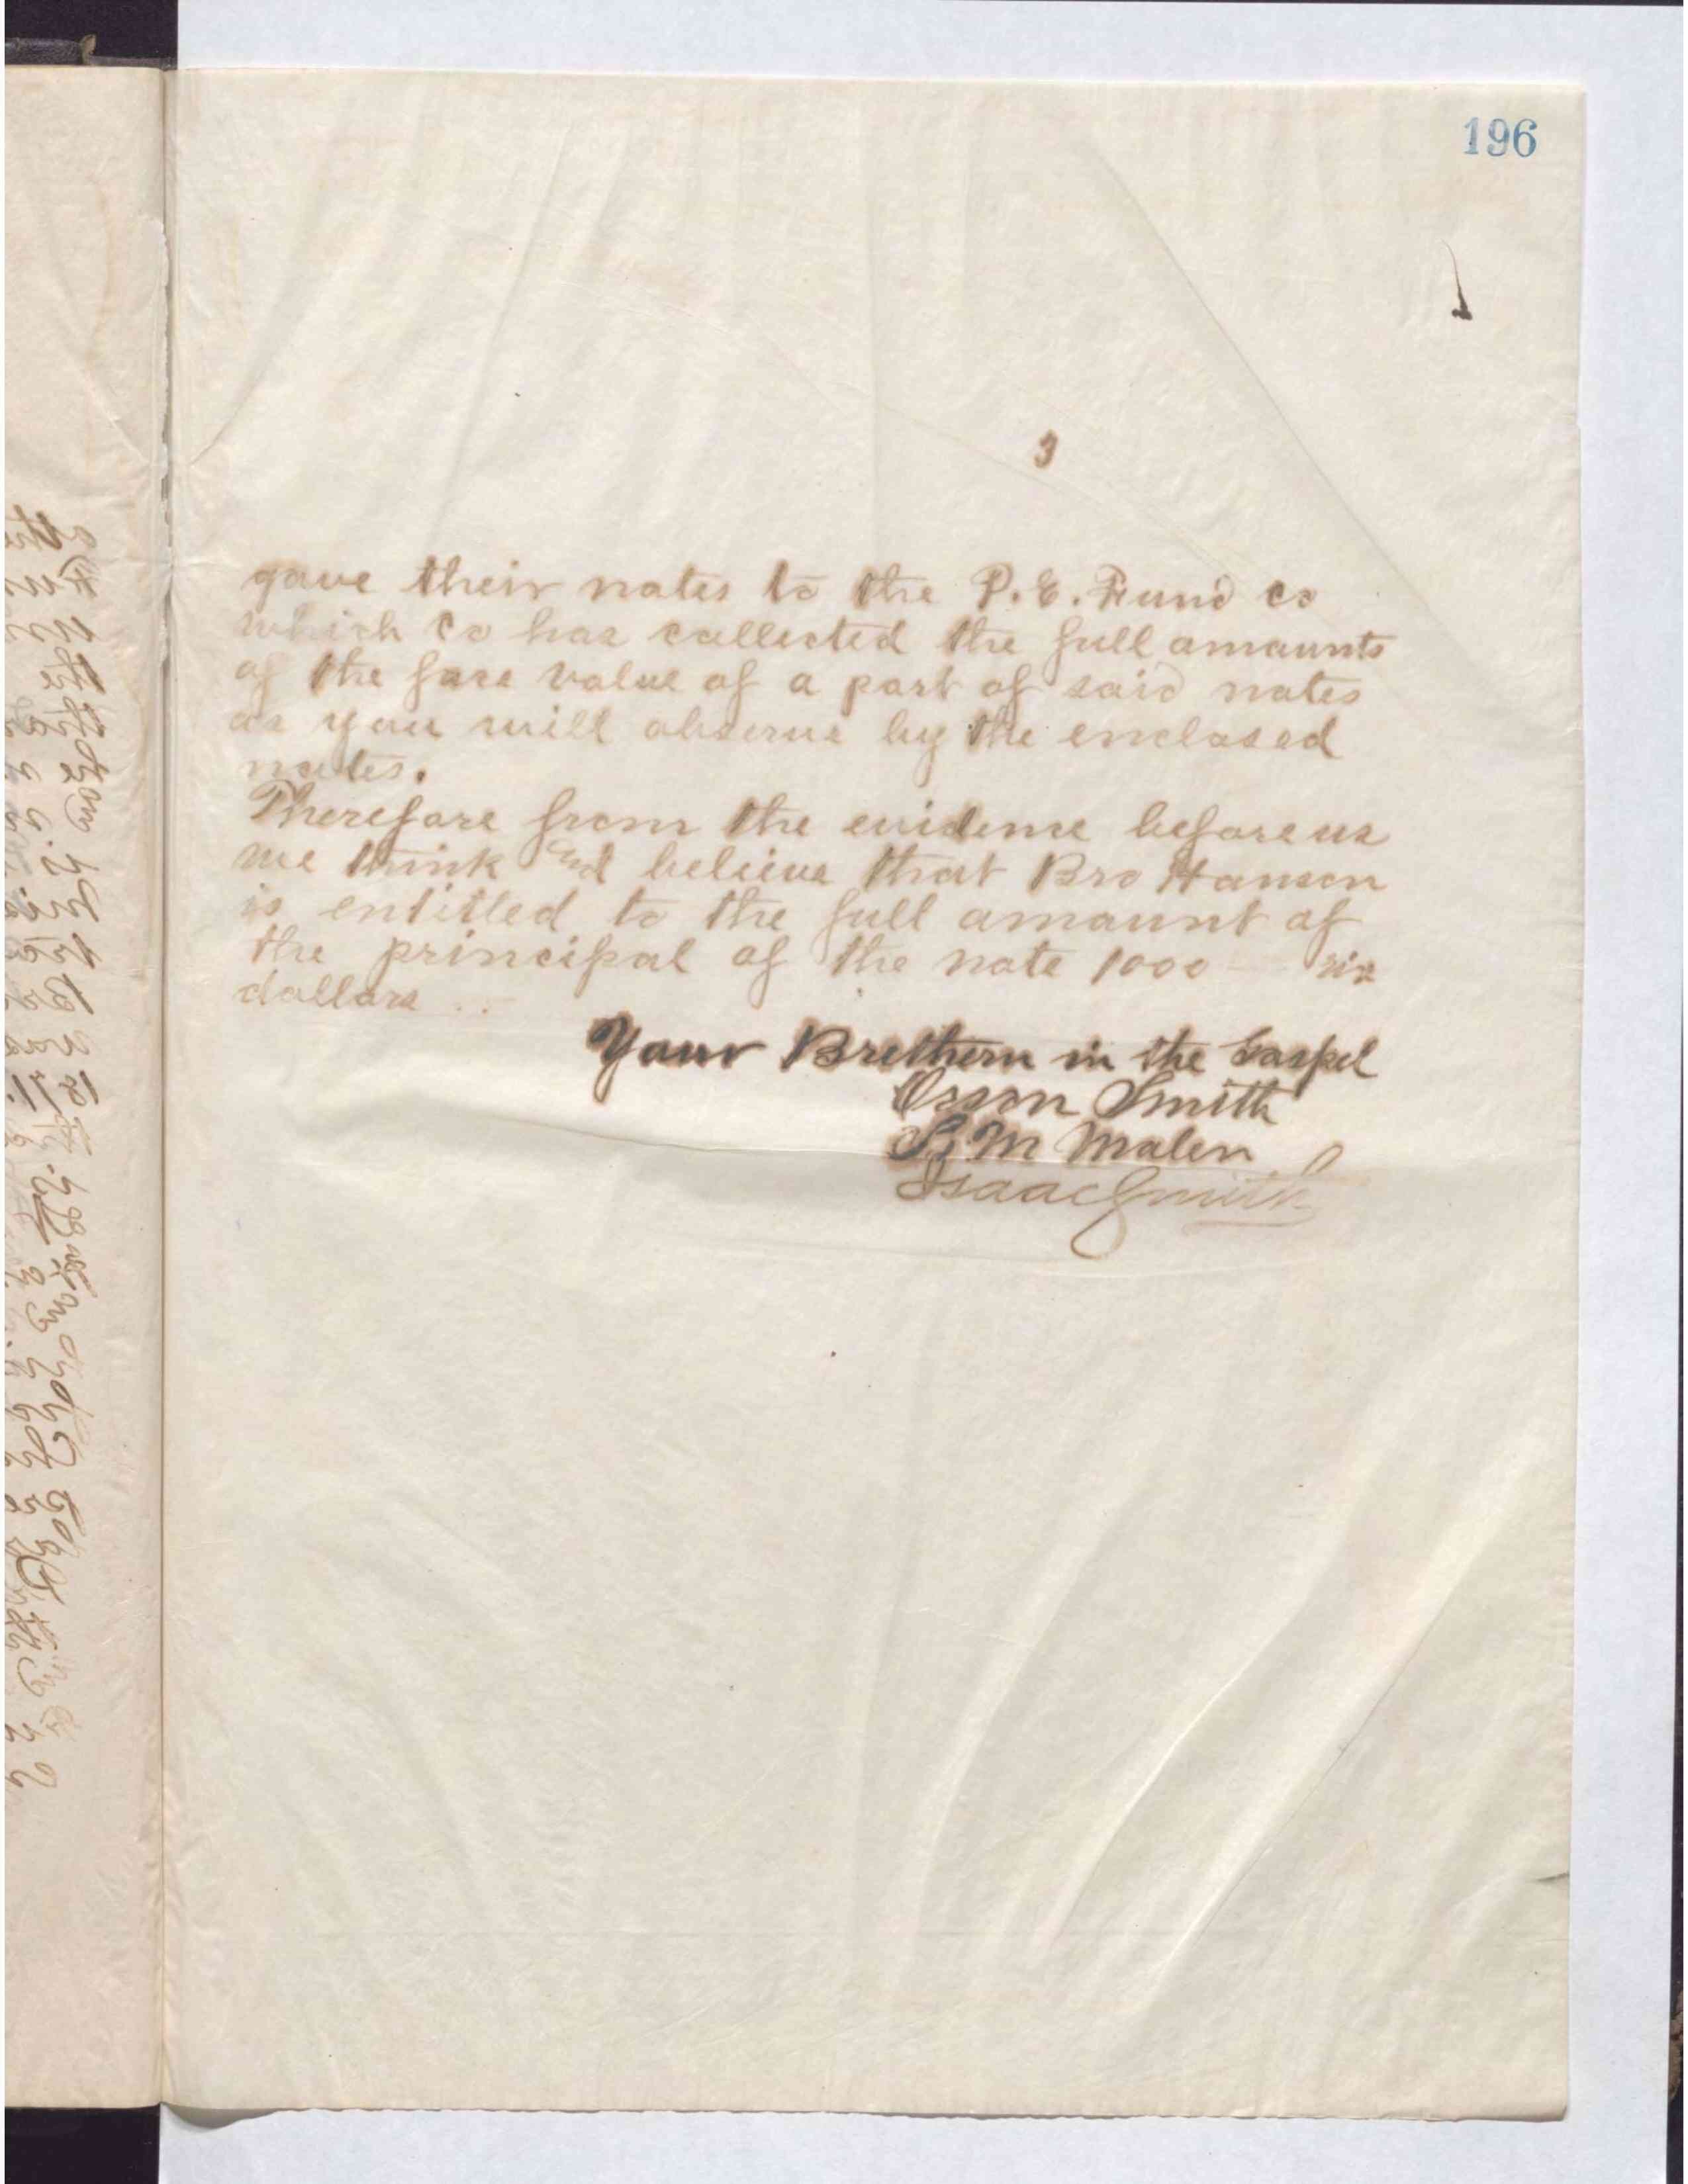 196
3
gave their notes to the P.E. Fund co
which co has collected the full amounts
of the face value of a part of said notes
as you will observe by the enclosed
notes.
Therefore from the evidence before us
we think and believe that Bro Hansen
is entitled to the full amount of
the principal of the note 1000 — rix
dollars ..
Your Brethern in the Gospel
Orson Smith
S. M Malen
Isaac Smith